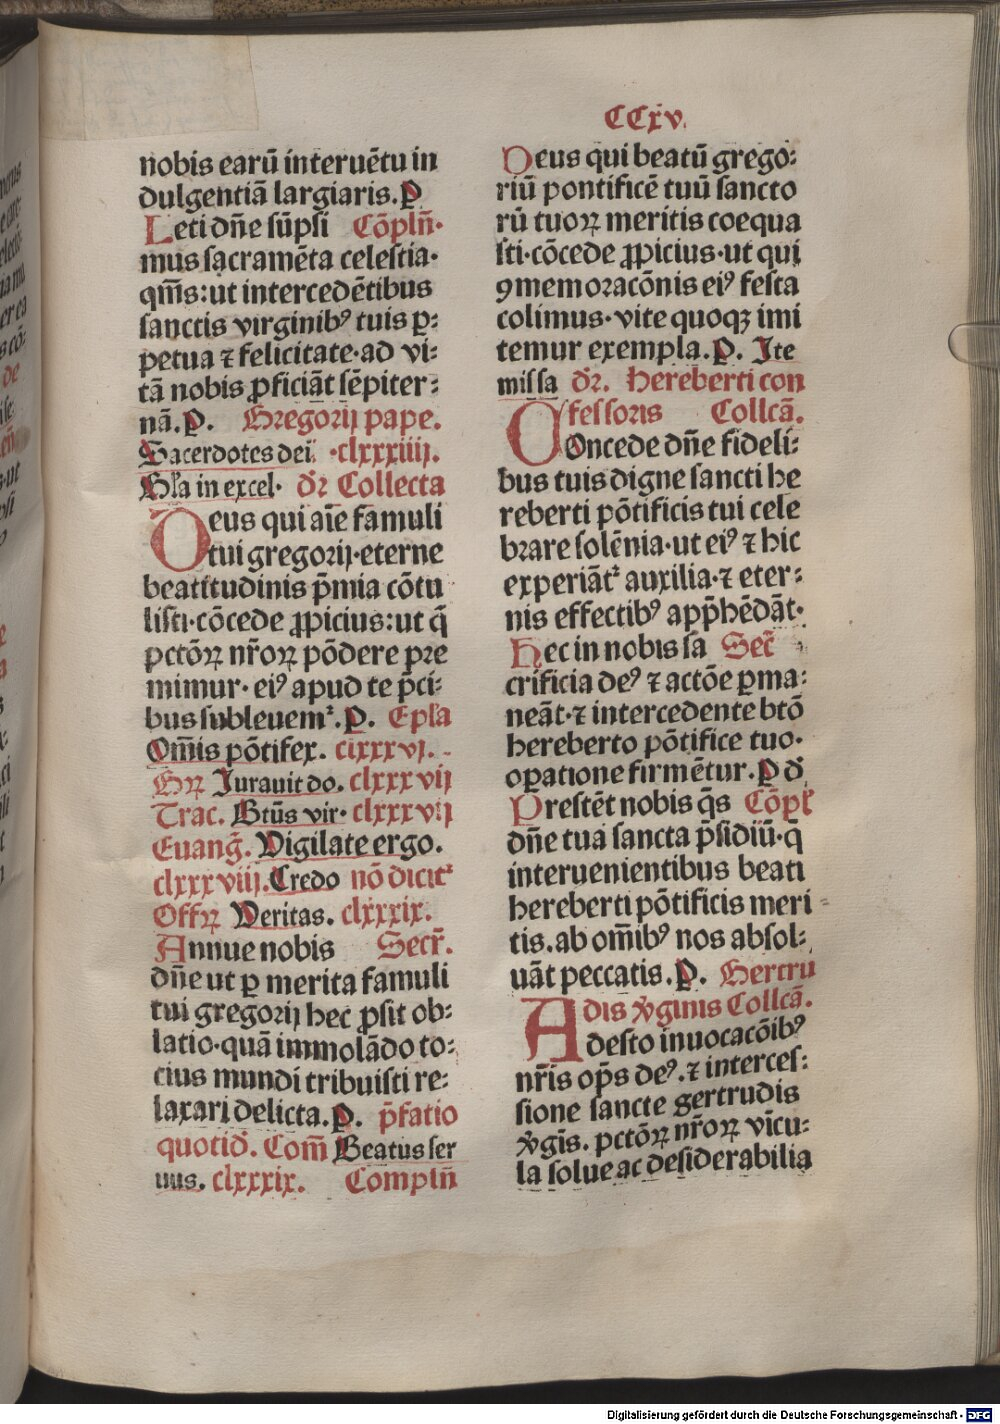 CCxv.
nobis earū interuētu in
dulgentiā largiaris. P
Leti dn̄e sūpsi Cōpln̄.
mus sacramēta celestia.
qm̄s: ut intercedētibus
sanctis virginibꝰ tuis ꝑ:
petua ⁊ felicitate. ad vi-
tā nobis ꝓficiāt sēpiter:
nā. P. Gregorij pape.
Sacerdotes dei. clxxxiiij.
Gl̄a in excel. dr̄ Collecta
Deus qui aīe famuli
tui gregorij. eterne
beatitudinis p̄mia cōtu
listi. cōcede ꝓpicius: ut q̄
pctōꝝ nr̄oꝝ pōdere pre
mimur. eiꝰ apud te p̄ci-
bus subleuem̄. P. Epl̄a
Om̄is pōtifex. clxxxvj.
Grꝝ Jurauit do. clxxxvij
Trac. Btūs vir. clxxxvij
Euanḡ. Vigilate ergo.
clxxxviij. Credo nō dicit̄
Offrꝝ Veritas. clxxxix.
Annue nobis Secr̄.
dn̄e ut ꝑ merita famuli
tui gregorij hec ꝓsit ob:
latio. quā immolādo to:
cius mundi tribuisti re:
laxari delicta. P. p̄fatio
quotid̄. Com̄ Beatus ser
uus. clxxxix. Compln̄
Deus qui beatū grego:
riū pontificē tuū sancto
rū tuoꝝ meritis coequa
sti. cōcede ꝓpicius. ut qui
ꝯmemoracōnis eiꝰ festa
colimus. vite quoqꝫ imi
temur exempla. P. Ite
missa dr̄. Hereberti con
fessoris Collcā.
Concede dn̄e fideli:
bus tuis digne sancti he
reberti pōtificis tui cele
brare solēnia. ut eiꝰ ⁊ hic
experiāt̄ auxilia. ⁊ eter:
nis effectibꝰ app̄hēdāt.
Hec in nobis sa Secr̄
crificia deꝰ ⁊ actōe ꝑma:
neāt. ⁊ intercedente btō
hereberto pōtifice tuo.
oꝑatione firmētur. P d̄
Prestēt nobis q̄s Cōpl̄
dn̄e tua sancta p̄sidiū. q̄
interuenientibus beati
hereberti pōtificis meri-
tis. ab om̄ibꝰ nos absol:
uāt peccatis. P. Gertru
dis v̄ginis Collcā.
Adesto inuocacōibꝰ
nr̄is op̄s deꝰ. ⁊ interces:
sione sancte gertrudis
v̄gīs. pctōꝝ nr̄oꝝ vīcu:
la solue ac desiderabilia
Digitalisierung gefördert durch die Deutsche Forschungsgemeinschaft - DFG